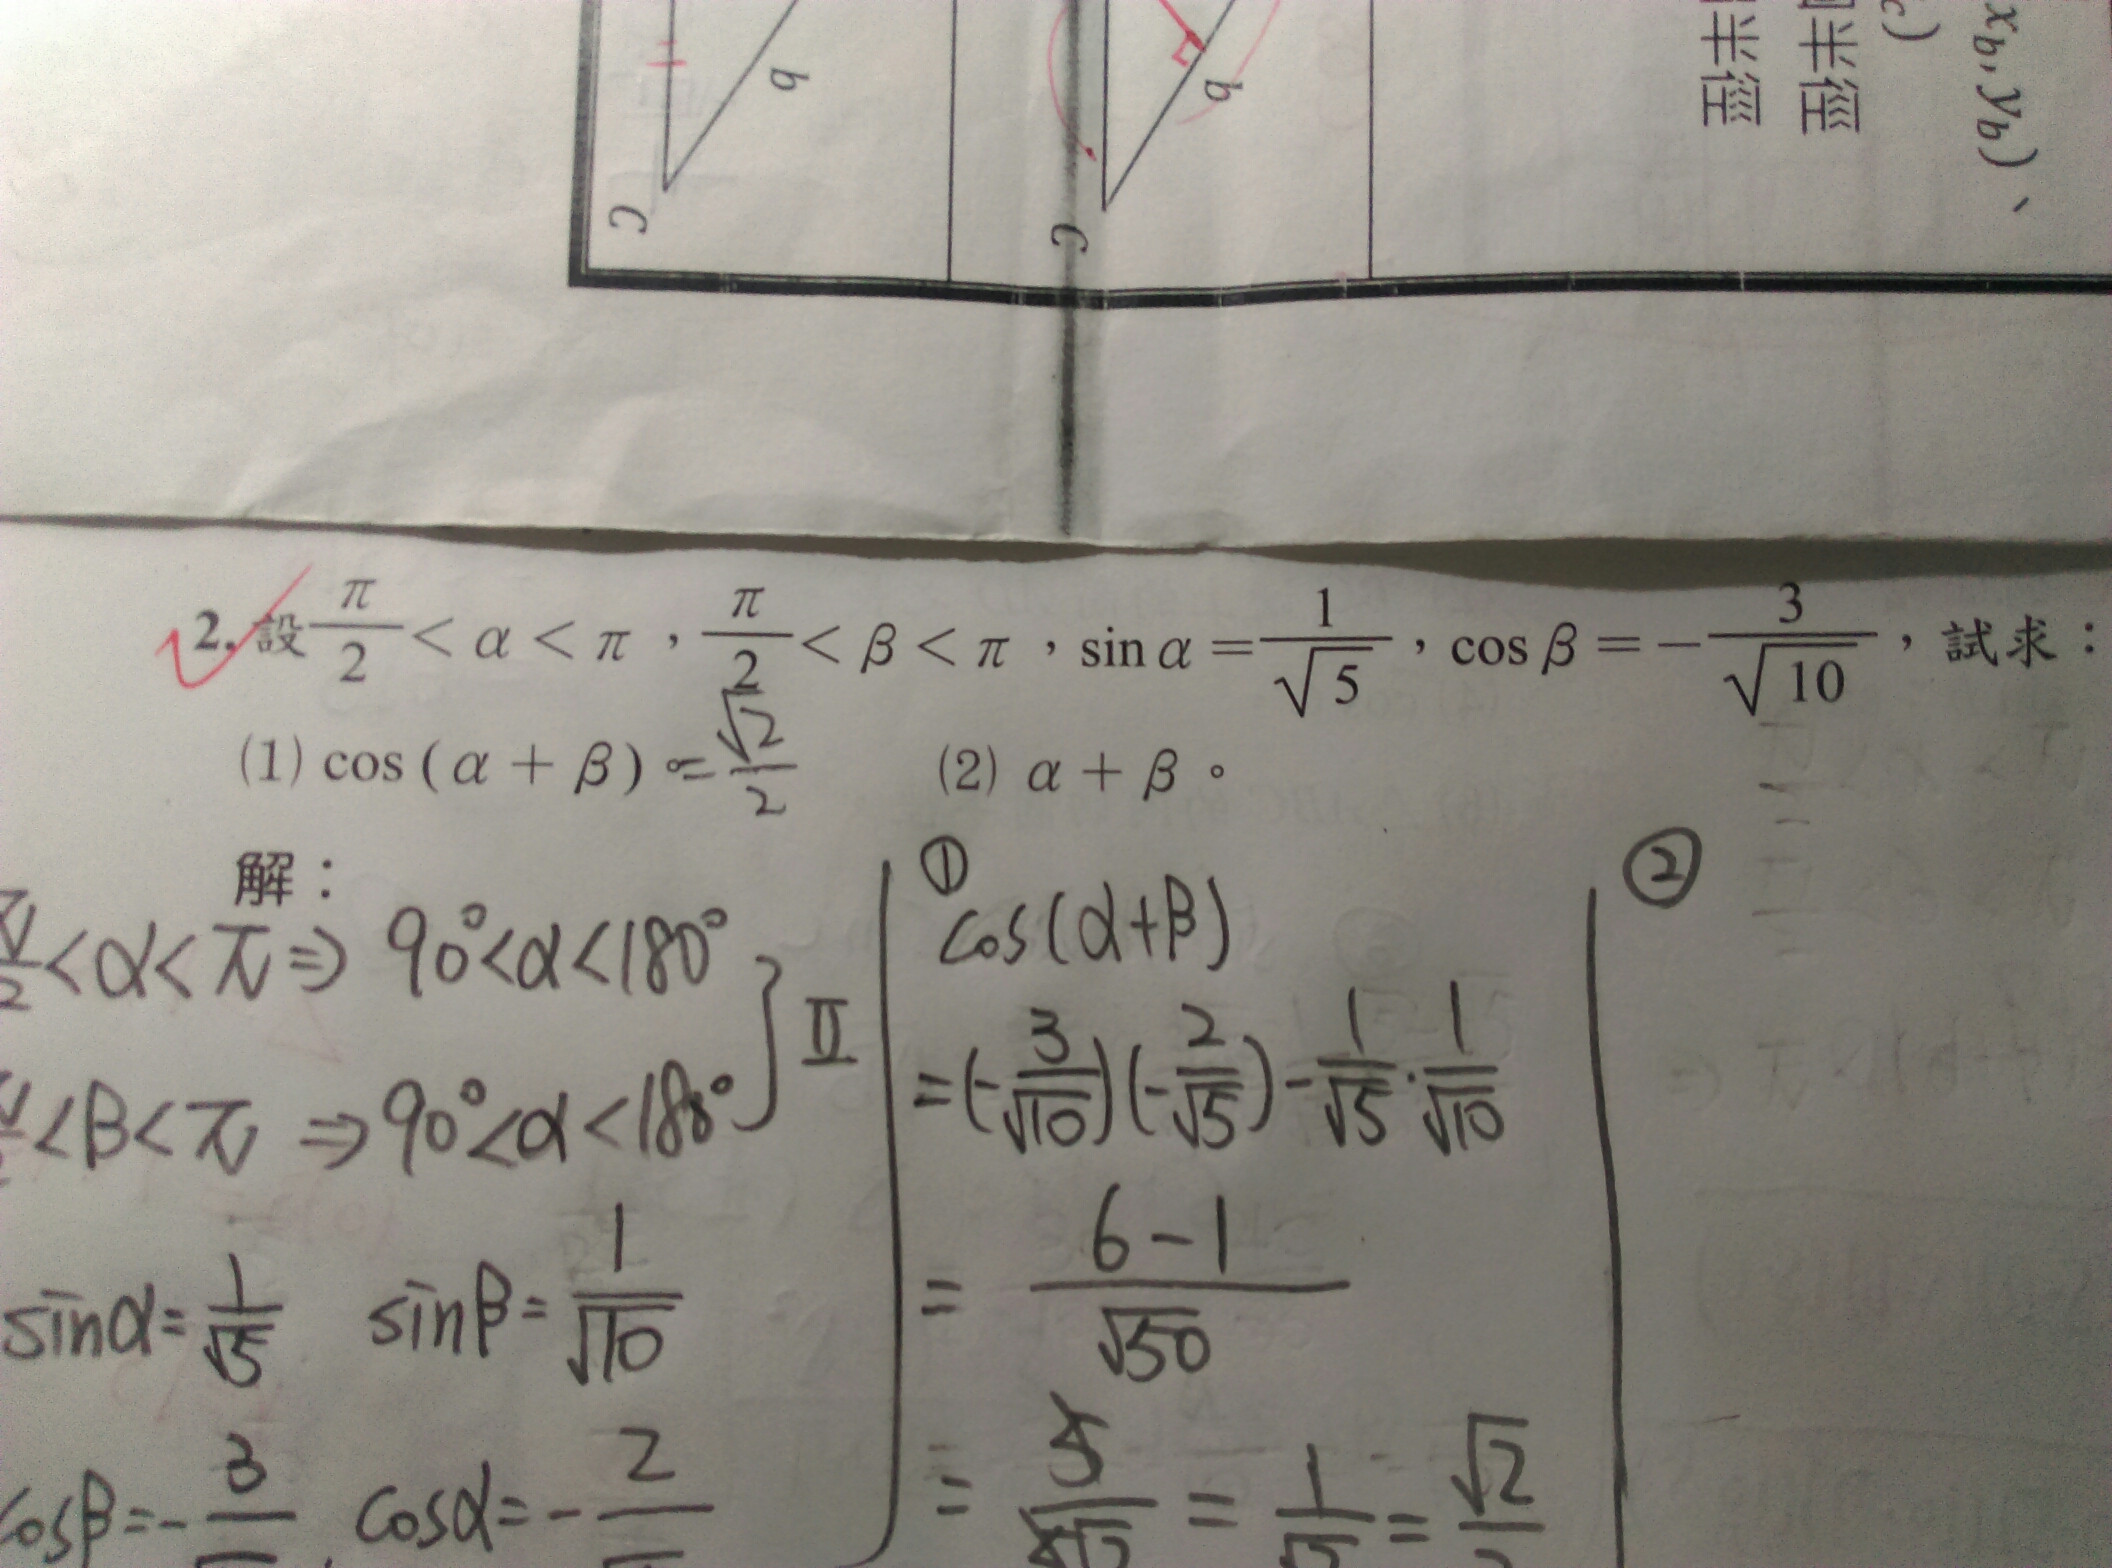 b
C
b
C
半徑
半徑
c)
x_b, y_b)、
2. 設 π/2 < α < π，π/2 < β < π，sin α = 1/√5，cos β = −3/√10，試求：
(1) cos ( α + β )。= √2/2
(2) α + β。
解：
π/2 < α < π ⇒ 90° < α < 180°
< β < π ⇒ 90° < α < 180°
} II
sinα = 1/√5 sinβ = 1/√10
cosβ = − 3/ cosα = − 2/
①
cos(α+β)
= (−3/√10)(−2/√5) − 1/√5 · 1/√10
= 6−1/√50
= 5/5√2 = 1/√2 = √2/2
②